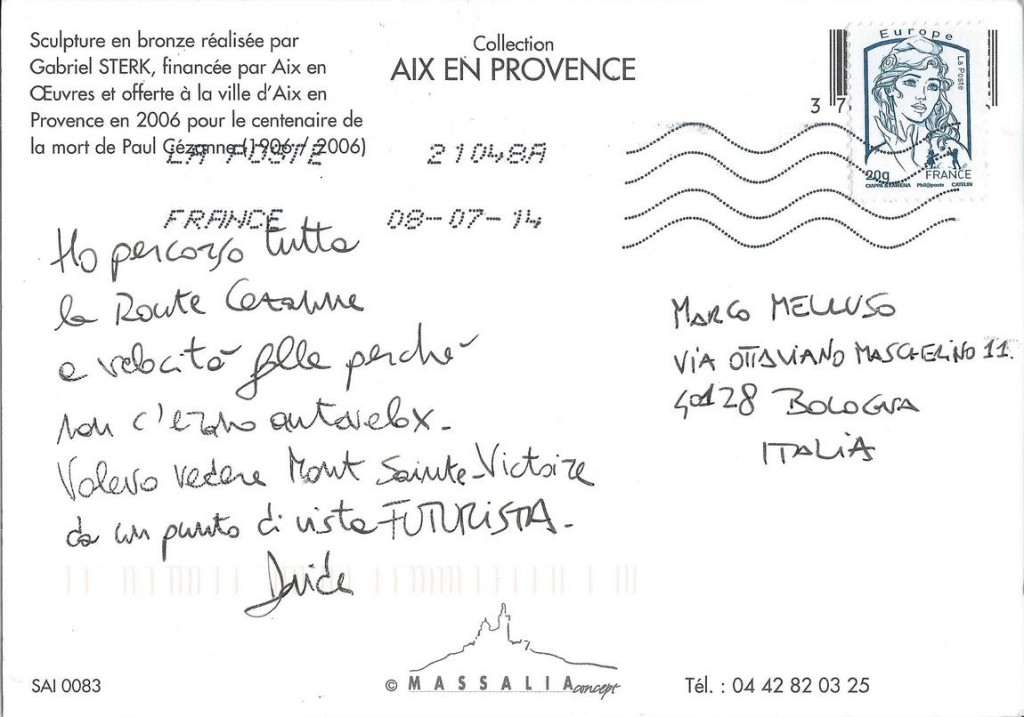 Sculpture en bronze réalisée par
Gabriel STERK, financée par Aix en
Œuvres et offerte à la ville d'Aix en
Provence en 2006 pour le centenaire de
la mort de Paul Cézanne (1906 / 2006)
Collection
AIX EN PROVENCE
3 7
Europe
La Poste
20g
FRANCE
CIAPPA & KAWENA Phil@poste CATELIN
LA POSTE 21048A
FRANCE 08-07-14
Ho percorso tutta
la Route Cezanne
a velocità folle perché
non c'erano autovelox.
Volevo vedere Mont Sainte-Victoire
da un punto di vista FUTURISTA.
Davide
MARCO MELLUSO
VIA OTTAVIANO MASCHERINO 11.
40128 BOLOGNA
ITALIA
SAI 0083
© MASSALIA concept
Tél. : 04 42 82 03 25